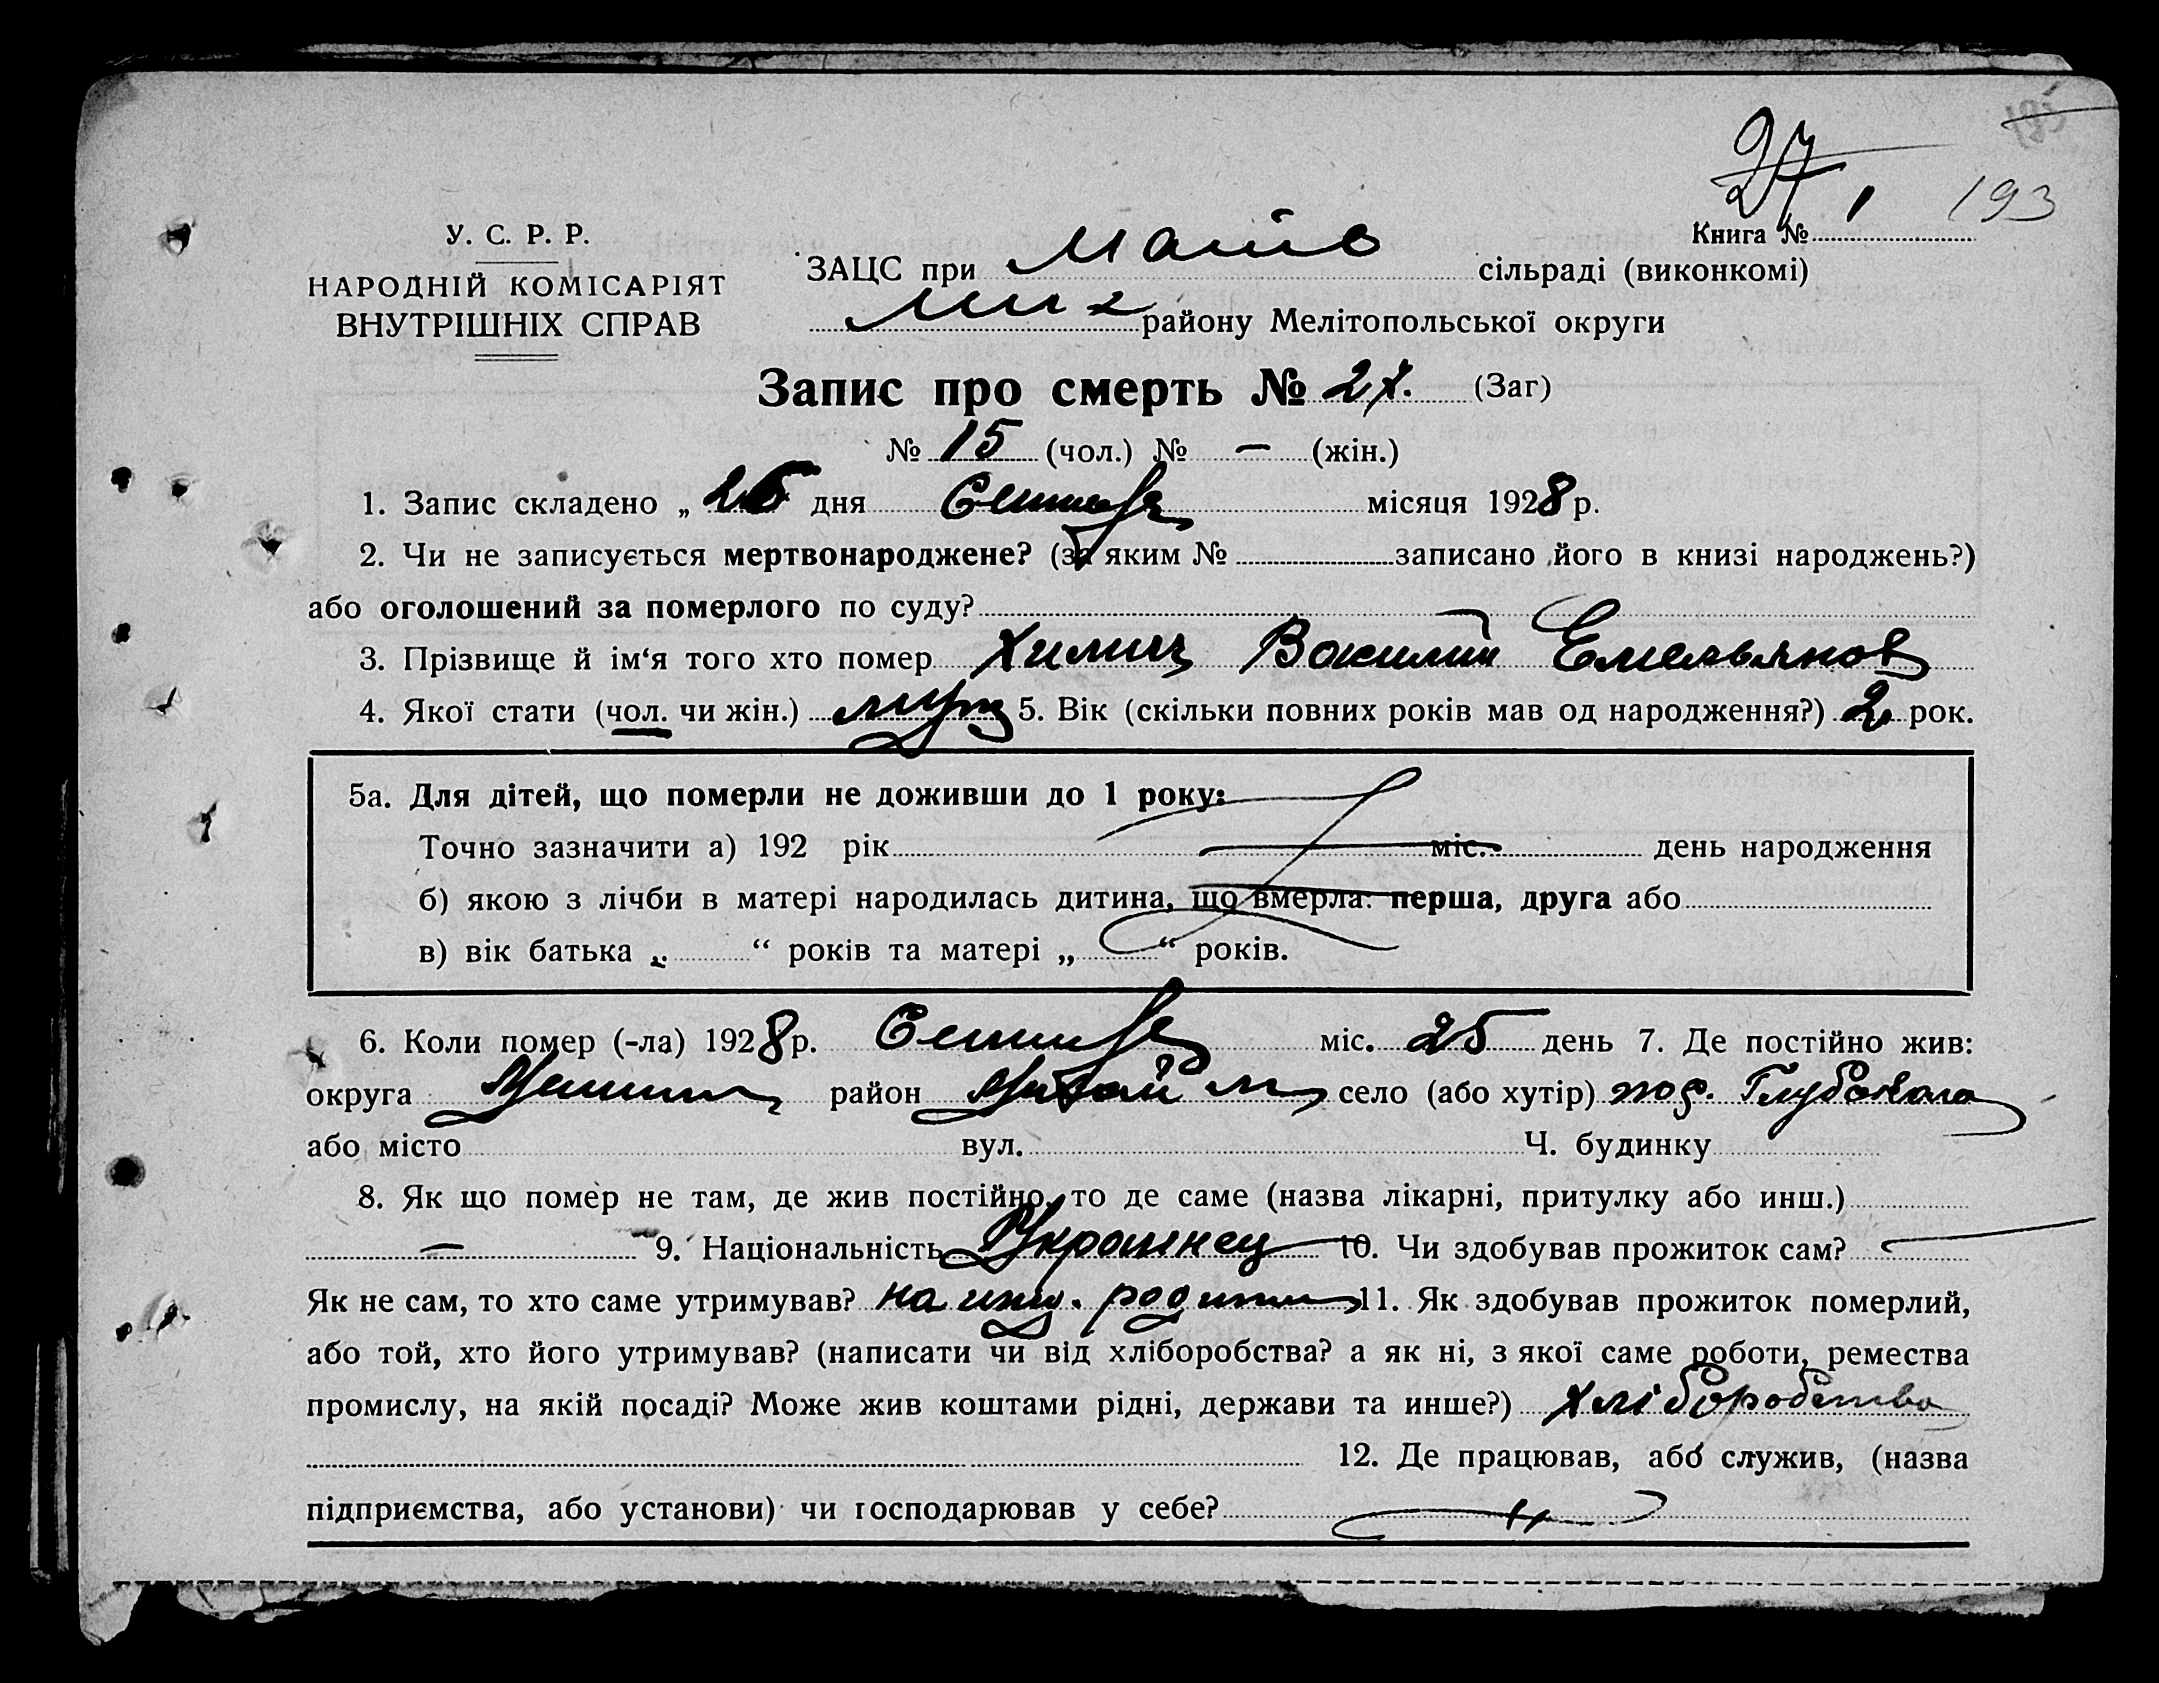 27
193
У. С. Р. Р.
НАРОДНІЙ КОМІСАРІЯТ
ВНУТРІШНІХ СПРАВ
Книга № 1
ЗАЦС при сільраді (виконкомі)
району Мелітопольської округи
Запис про смерть № 27. (Заг)
№ 15 (чол.) № — (жін.)
1. Запис складено „ дня місяця 1928 р.
2. Чи не записується мертвонароджене? (за яким № записано його в книзі народжень?)
або оголошений за померлого по суду?
3. Прізвище й ім'я того хто помер Василий Емельянов
4. Якої стати (чол. чи жін.) муж 5. Вік (скільки повних років мав од народження?) 2 рок.
5а. Для дітей, що померли не доживши до 1 року:
Точно зазначити а) 192 рік міс. день народження
б) якою з лічби в матері народилась дитина, що вмерла: перша, друга або
в) вік батька „ “ років та матері „ “ років.
6. Коли помер (-ла) 1928 р. міс. 25 день 7. Де постійно жив:
округа район село (або хутір)
або місто вул. Ч. будинку
8. Як що помер не там, де жив постійно, то де саме (назва лікарні, притулку або инш.)
— 9. Національність Украинец 10. Чи здобував прожиток сам? —
Як не сам, то хто саме утримував? на 11. Як здобував прожиток померлий,
або той, хто його утримував? (написати чи від хліборобства? а як ні, з якої саме роботи, ремества
промислу, на якій посаді? Може жив коштами рідні, держави та инше?) хліборобство
12. Де працював, або служив, (назва
підприємства, або установи) чи господарював у себе?